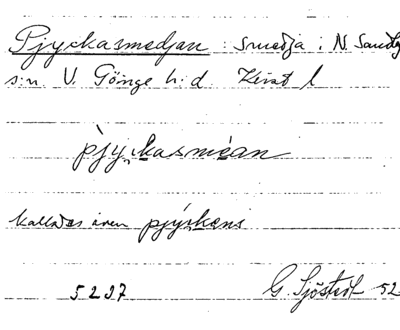 Pjyckasmedjan : smedja i N. Sandby
s:n V. Göinge h:d Krist l
pjyckasmèan
kallades även pjyckens
5237
G. Sjöstedt 52